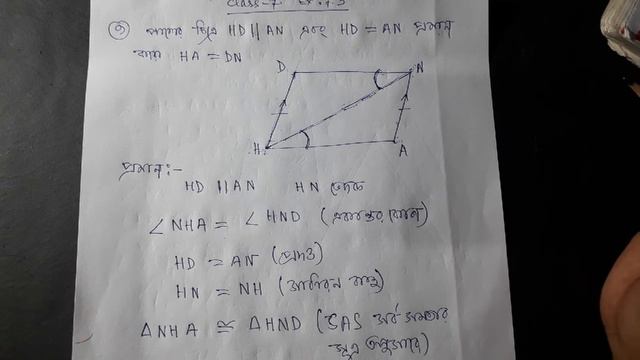 Class-7
③ পাশের চিত্রে HD || AN এবং HD = AN প্রমাণ
করো HA = DN
D N
H A
প্রমাণ:-
HD || AN HN ছেদক
∠NHA = ∠HND (একান্তর কোণ)
HD = AN (প্রদত্ত)
HN = NH (সাধারণ বাহু)
△NHA ≅ △HND (SAS সর্বসমতার
সূত্র অনুসারে)